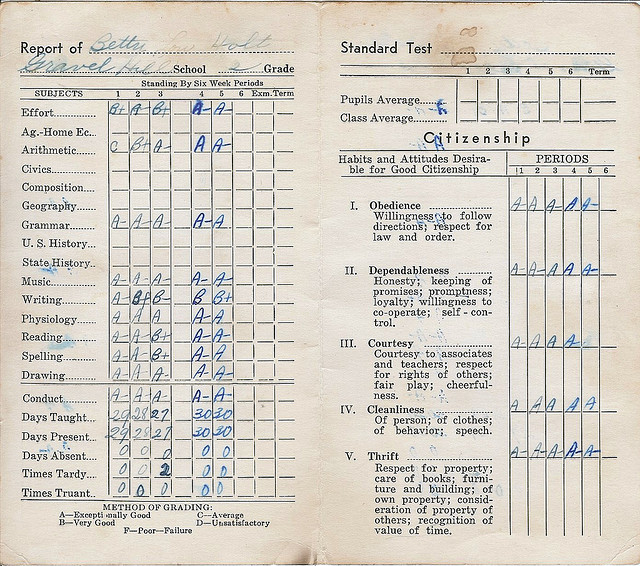 Report of Betty Holt
Gravel Hill School 2 Grade
Standing By Six Week Periods
SUBJECTS 1 2 3 4 5 6 Exm. Term
Effort B+ A- B+ A- A-
Ag.-Home Ec...
Arithmetic C B+ A- A A
Civics
Composition
Geography
Grammar A- A- A- A-A
U. S. History...
State History..
Music A- A- A- A- A-
Writing A- B+ B- B B+
Physiology A A A A-A
Reading A- A- B+ A-A
Spelling A- A- B+ A-A
Drawing A- A- A- A-A-
Conduct A- A- A- A-A-
Days Taught 29 28 27 30 30
Days Present 29 28 27 30 30
Days Absent 0 0 0 0 0
Times Tardy 0 0 2 0 0
Times Truant 0 0 0 0 0
METHOD OF GRADING:
A—Exceptionally Good C—Average
B—Very Good D—Unsatisfactory
F—Poor—Failure
Standard Test
1 2 3 4 5 6 Term
Pupils Average
Class Average
Citizenship
Habits and Attitudes Desira-
ble for Good Citizenship
PERIODS
1 2 3 4 5 6
I. Obedience A- A- A- A A-
Willingness to follow
directions; respect for
law and order.
II. Dependableness A- A- A A A-
Honesty; keeping of
promises; promptness;
loyalty; willingness to
co-operate; self-con-
trol.
III. Courtesy A- A A A-
Courtesy to associates
and teachers; respect
for rights of others;
fair play; cheerful-
ness.
IV. Cleanliness A A A A A
Of person; of clothes;
of behavior; speech.
V. Thrift A- A- A- A- A-
Respect for property;
care of books; furni-
ture and building; of
own property; consid-
eration of property of
others; recognition of
value of time.